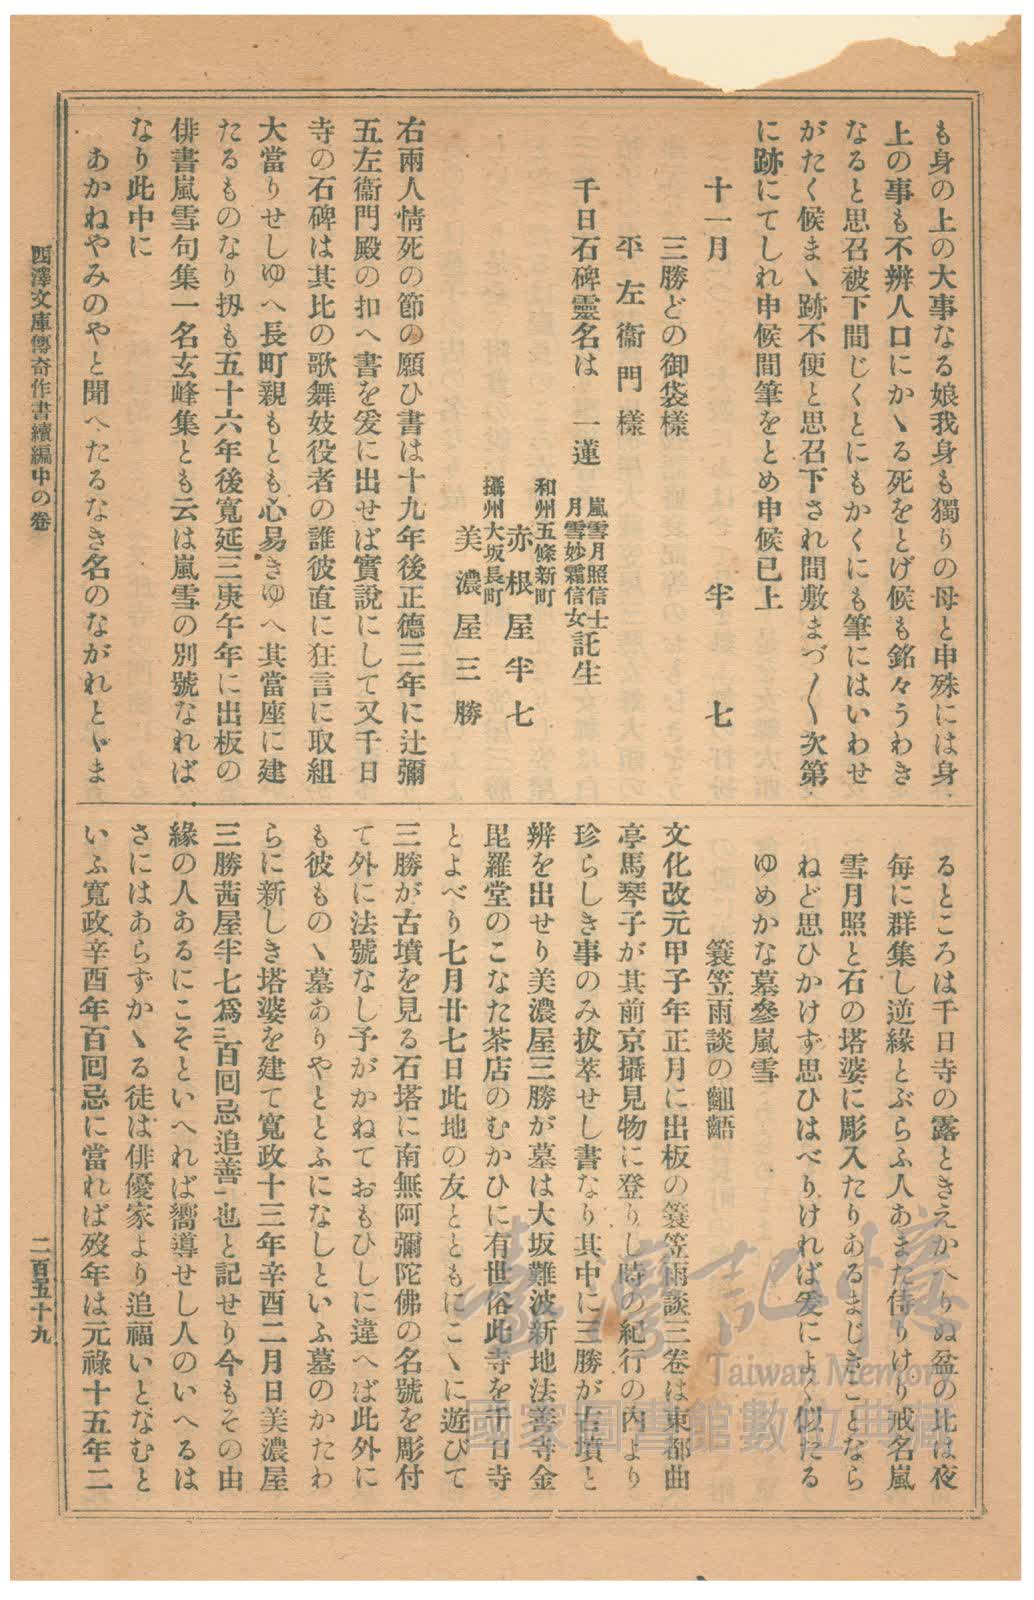 も身の上の大事なる娘我身も獨りの母と申殊には身
上の事も不辨人口にかゝる死をとげ候も銘々うわき
なると思召被下間じくとにもかくにも筆にはいわせ
がたく候まゝ跡不便と思召下され間敷まづ〳〵次第
に跡にてしれ申候間筆をとめ申候已上
十一月 半七
三勝どの御袋樣
平左衞門樣
千日石碑靈名は 一蓮 嵐雪月照信士 月雪妙霜信女 託生
和州五條新町 赤根屋半七
攝州大坂長町 美濃屋三勝
右兩人情死の節の願ひ書は十九年後正德三年に辻彌
五左衞門殿の扣へ書を爰に出せば實說にして又千日
寺の石碑は其比の歌舞妓役者の誰彼直に狂言に取組
大當りせしゆへ長町親もとも心易きゆへ其當座に建
たるものなり扨も五十六年後寬延三庚午年に出板の
俳書嵐雪句集一名玄峰集とも云は嵐雪の別號なれば
なり此中に
あかねやみのやと聞へたるなき名のながれとゞま
るところは千日寺の露ときえかへりぬ盆の比は夜
每に群集し逆緣とぶらふ人あまた侍りけり戒名嵐
雪月照と石の塔婆に彫入たりあるまじきことなら
ねど思ひかけず思ひはべりければ爰によく似たる
ゆめかな墓參嵐雪
簑笠雨談の齟齬
文化改元甲子年正月に出板の簑笠雨談三卷は東都曲
亭馬琴子が其前京攝見物に登りし時の紀行の內より
珍らしき事のみ拔萃せし書なり其中に三勝が古墳と
辨を出せり美濃屋三勝が墓は大坂難波新地法善寺金
毘羅堂のこなた茶店のむかひに有世俗此寺を千日寺
とよべり七月廿七日此地の友とともにこゝに遊びて
三勝が古墳を見る石塔に南無阿彌陀佛の名號を彫付
て外に法號なし予がかねておもひしに違へば此外に
も彼ものゝ墓ありやととふになしといふ墓のかたわ
らに新しき塔婆を建て寬政十三年辛酉二月日美濃屋
三勝茜屋半七爲三百回忌追善也と記せり今もその由
緣の人あるにこそといへれば嚮導せし人のいへるは
さにはあらずかゝる徒は俳優家より追福いとなむと
いふ寬政辛酉年百回忌に當れば歿年は元祿十五年二
西澤文庫傳奇作書續編中の卷
二百五十九
臺灣記憶
Taiwan Memory
國家圖書館數位典藏